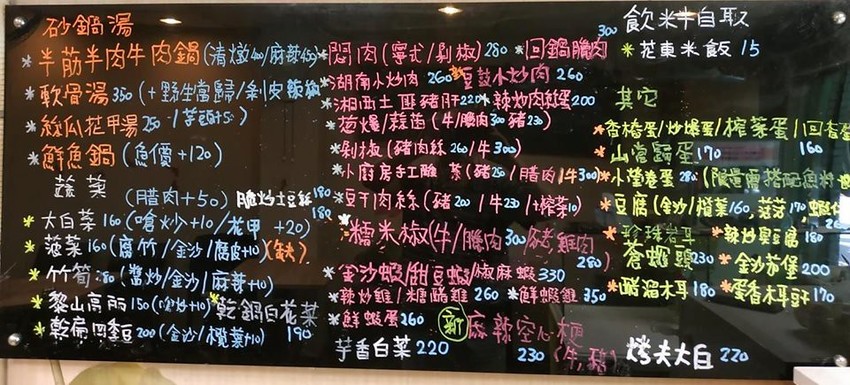 砂鍋湯
*半筋半肉牛肉鍋(清燉400/麻辣450)
*軟骨湯350(+野生當歸/剝皮辣椒
*絲瓜花甲湯250
*鮮魚鍋(魚價+120)
蔬菜(腊肉+50)脆炒土豆絲180
*大白菜160(嗆炒+10/花甲+20) 180
*菠菜160(腐竹/金沙/腐皮+10)(缺)
*竹筍180(當炒/金沙/麻辣+10)
*黎山高丽150(嗆炒+10)*乾鍋白花菜
*乾扁四季豆200(金沙/欖菜+10) 190
*悶肉(寧式/剁椒)280 *回鍋臘肉300
*湖南小炒肉260*豆豉小炒肉260
*湘西土匪豬肝220*辣炒肉鬆蛋200
*蔥爆/蒜苗(牛/臘肉300豬230)
*剁椒(豬肉絲260/牛300)
*小廚房手工酸菜(豬250/腊肉牛300)
*豆干肉絲(豬200/牛230/+榨菜10)
*糯米椒(牛/臘肉300豬雞肉280)
*金沙蝦/甜豆蝦/椒麻蝦330
*辣炒雞/糖醋雞260 *鮮蝦雞350
*鮮蝦蛋260 新 麻辣空心梗
芋香白菜220 230(牛,豬)
飲料自取
*花東米飯15
其它
*香椿蛋/炒爆蛋/榨菜蛋/回香蛋
*山當歸蛋170 160
*小瑩卷蛋280(限量需搭配魚料
*豆腐(金沙/欖菜160,菠菜170/蝦仁
*珍珠岩耳180 *辣炒臭豆腐180
蒼蠅頭230 *金沙茄堡200
*醋溜木耳180 *蛋香木耳170
烤夫大白220